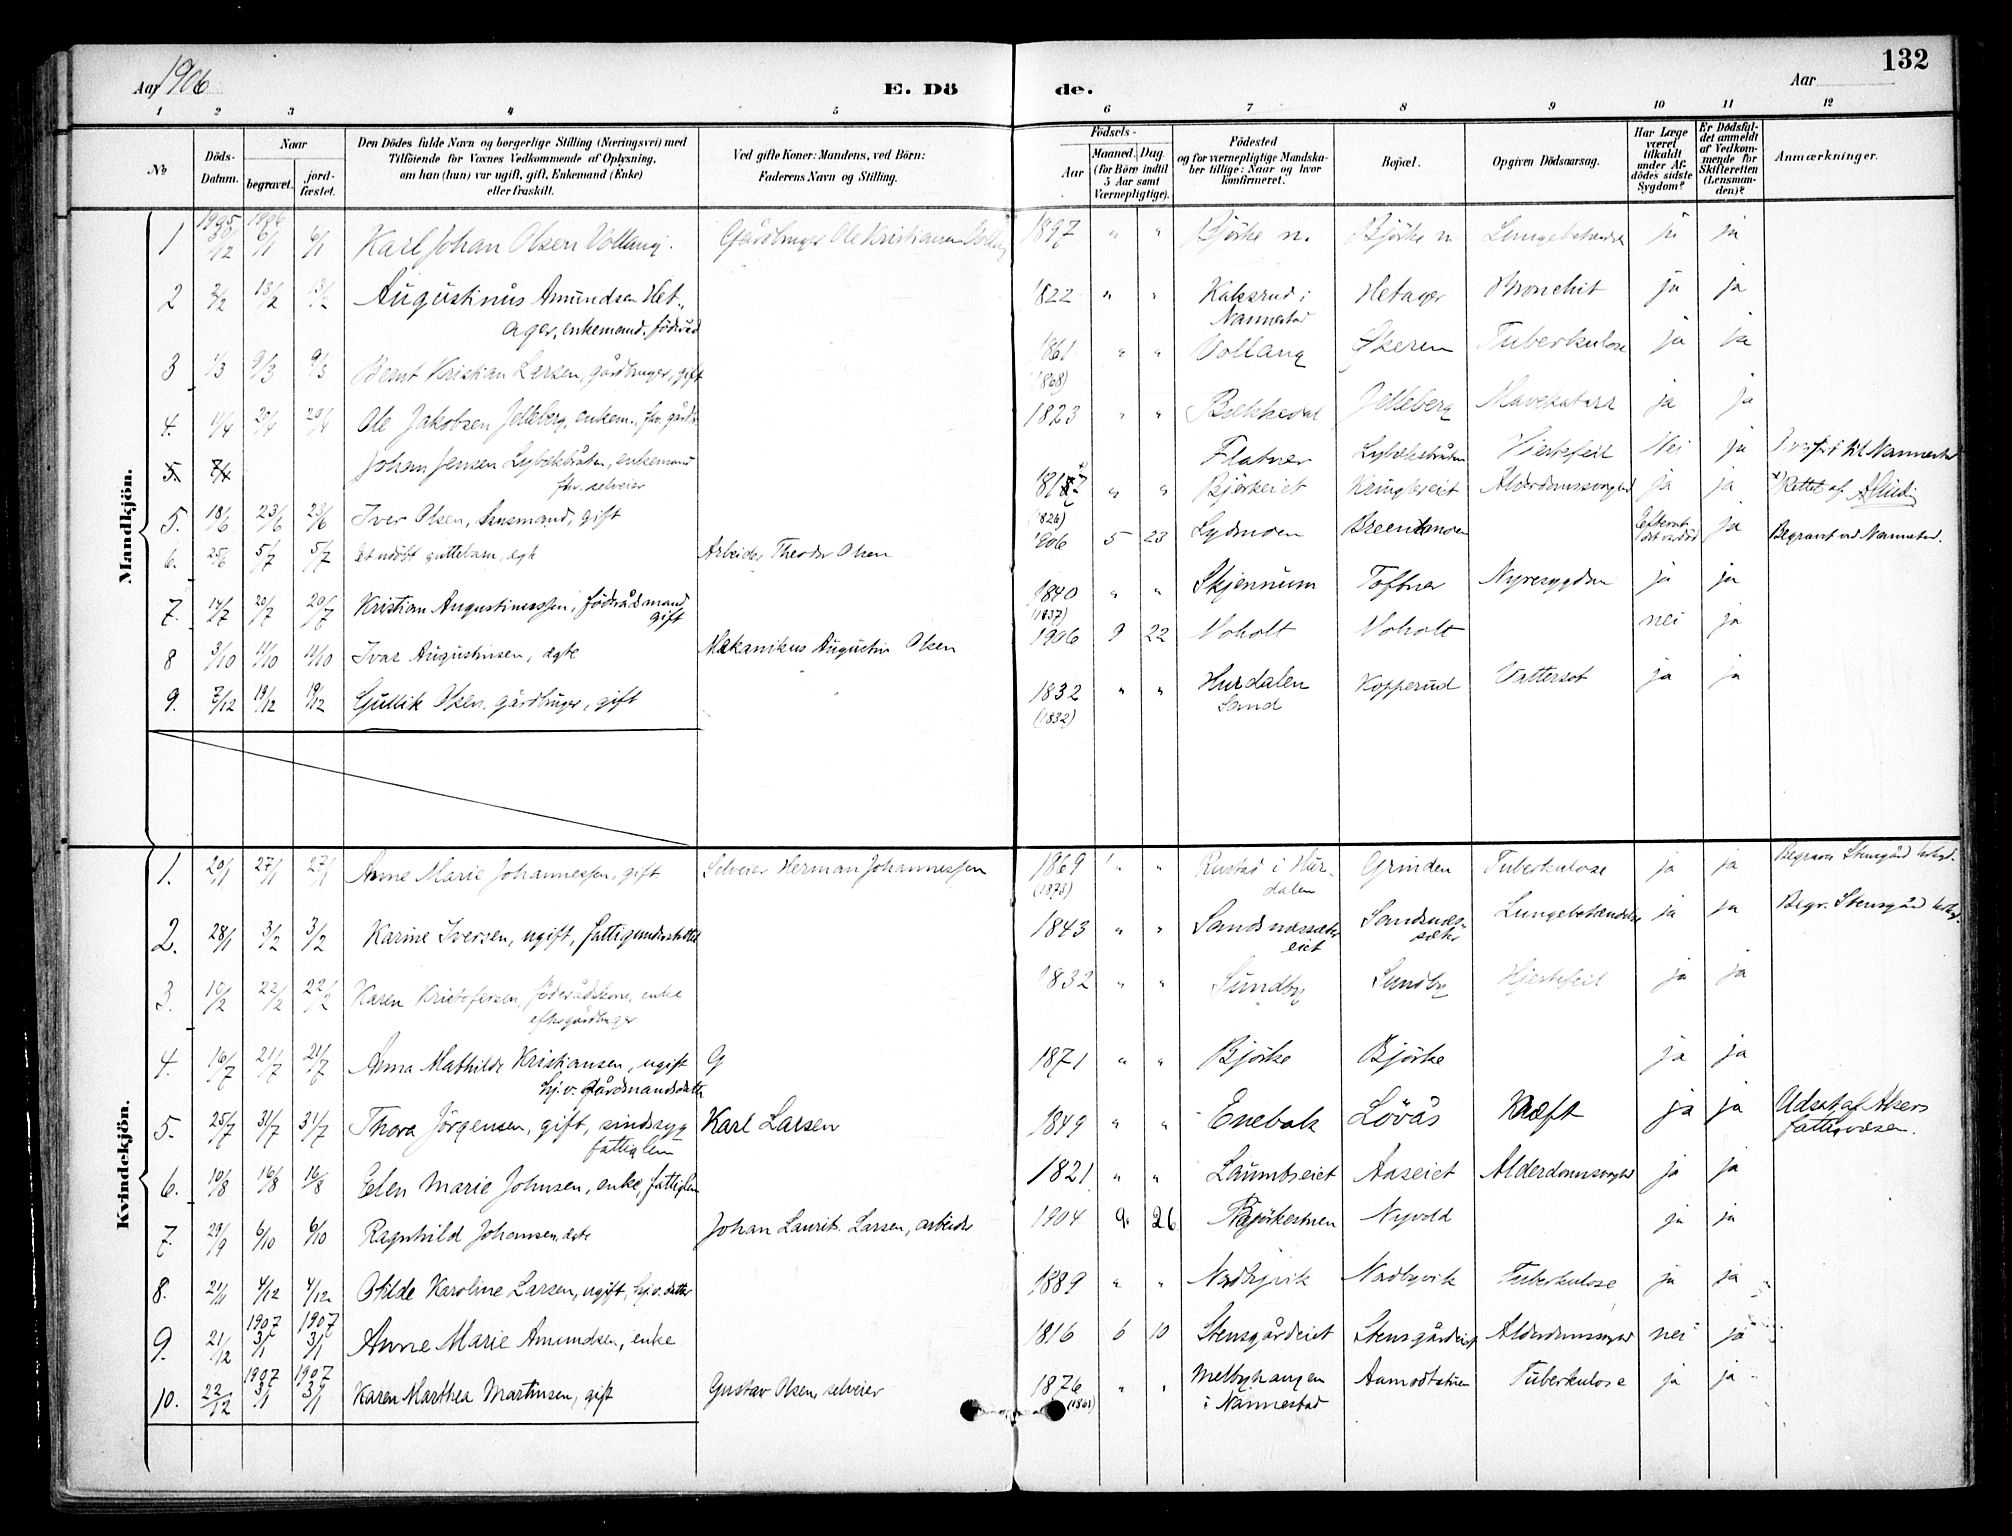 Aar 1906 E. Dö
de. Aar 132
1 2 3 4 5 6 7 8 9 10 11 12
No Döds-Datum. Naar begravet. jordfæstet. Den Dödes fulde Navn og borgerlige Stilling (Næringsvei) med Tilföiende for Voxnes Vedkommende af Oplysning, om han (hun) var ugift, gift, Enkemand (Enke) eller fraskilt. Ved gifte Koner: Mandens, ved Börn: Faderens Navn og Stilling. Födsels- Aar Maaned. Dag. (for Börn indtil 5 Aar samt Værnepligtige). Födested og for værnepligtige Mandskaber tillige: Naar og hvor konfirmeret. Bopæl. Opgiven Dödsaarsag. Har Læge været tilkaldt under Afdödes sidste Sygdom? Er Dödsfaldet anmeldt af Vedkommende for Skifteretten (Lensmanden)? Anmærkninger.
Mandkjön.
1 1905 30/12 1906 6/1 6/1 Karl Johan Olsen Vollang. Gårdbruger Ole Kristiansen 1897 " " Björke n. Björke n ja ja
2 2/2 13/2 13/2 Augustinus Amundsen Het-
ager, enkemand, föderåd 1822 " " Kaksrud i Nannestad Hetager Bronchit ja ja
3 1/3 9/3 9/3 Bernt Kristian Larsen, gårdbruger, gift 1861 (1868) " " Vollang Skeren Tuberkulose ja ja
4. 11/4 20/4 20/4 Ole Jakobsen Jelleberg, enkem., fhv. gårdb. 1823 " " Bækkedal Jelleberg Mavekatarr ja ja
5. 7/4 Johan Jensen Lybekbråten, enkemand
fhv. selveier Flatner Lybeksbråten Hjertefeil Nei ja
5. 18/6 23/6 23/6 Iver Olsen, Lensmand, gift (1826) " " Björkeiet Kringlereiet Alderdomssvaghed ja ja Rettet af
6. 25/6 5/7 5/7 et udöbt guttebarn, egte Arbeider Theodor Olsen 1906 5 23 Lydmoen ja Begravet ved Nannestad.
7. 14/7 20/7 20/7 Kristian Augustinussen, föderådsmand
gift 1840 (1837) " " Skjennum Toftner Nyresygdom ja ja
8 3/10 11/10 11/10 Ivar Augustinsen, ægte Mekanikus Augustin Olsen 1906 9 22 Noholt Noholt nei ja
9. 7/12 19/12 19/12 Gullik Olsen, gårdbruger, gift 1832 (1832) " " Hurdalen
Sand Kopperud Vattersot ja ja
Kvindekjön.
1. 20/1 27/1 27/1 Anne Marie Johannessen, gift Selveier Herman Johannessen 1869 (1873) " " Rustad i Hur-
dalen Grinden Tuberkulose ja ja Begraven Stensgård kirkeg.
2. 28/1 3/2 3/2 Karine Iversen, ugift, fattigunderstöttet 1843 " " Sandsnessæter
eiet Sandsnes-
sæter Lungebetændelse ja ja Begr. Stensgård kirkeg.
3. 10/2 22/2 22/2 Karen Kristofersen, föderådskone, enke
efter gårdbruger 1832 " " Sundby Sundby Hjertefeil ja ja
4. 16/7 21/7 21/7 Anna Mathilde Kristiansen, ugift G
hj.v. Gårdmandsdatter 1871 " " Björke Björke ja ja
5. 25/7 31/7 31/7 Thora Jörgensen, gift, sindssyg
fattiglem Karl Larsen 1849 " " Enebak Lövås Kræft ja ja Udsat af Akers
fattigvæsen.
6. 10/8 16/8 16/8 Elen Marie Johnsen, enke, fattiglem 1821 " " Laumbseiet Aaseiet Alderdomssvaghed ja ja
7. 29/9 6/10 6/10 Ragnhild Johansen, ægte Johan Laurits Larsen, arbeider 1904 9. 26 Björkestuen Nyvold ja ja
8. 21/11 4/12 4/12 Otilde Karoline Larsen, ugift, hj.v. datter 1889 " " Nordbyvik Nordbyvik Tuberkulose ja ja
9. 21/12 1907 3/1 1907 3/1 Anne Marie Amundsen, enke 1816 6 10 Stensgårdeiet Stensgårdeiet Alderdomssvaghed nei ja
10. 22/12 1907 3/1 1907 3/1 Karen Marthea Martinsen, gift Gustav Olsen, selveier 1876 (1861) " " Melbyhaugen
i Nannestad Aamodtstuen Tuberkulose ja ja